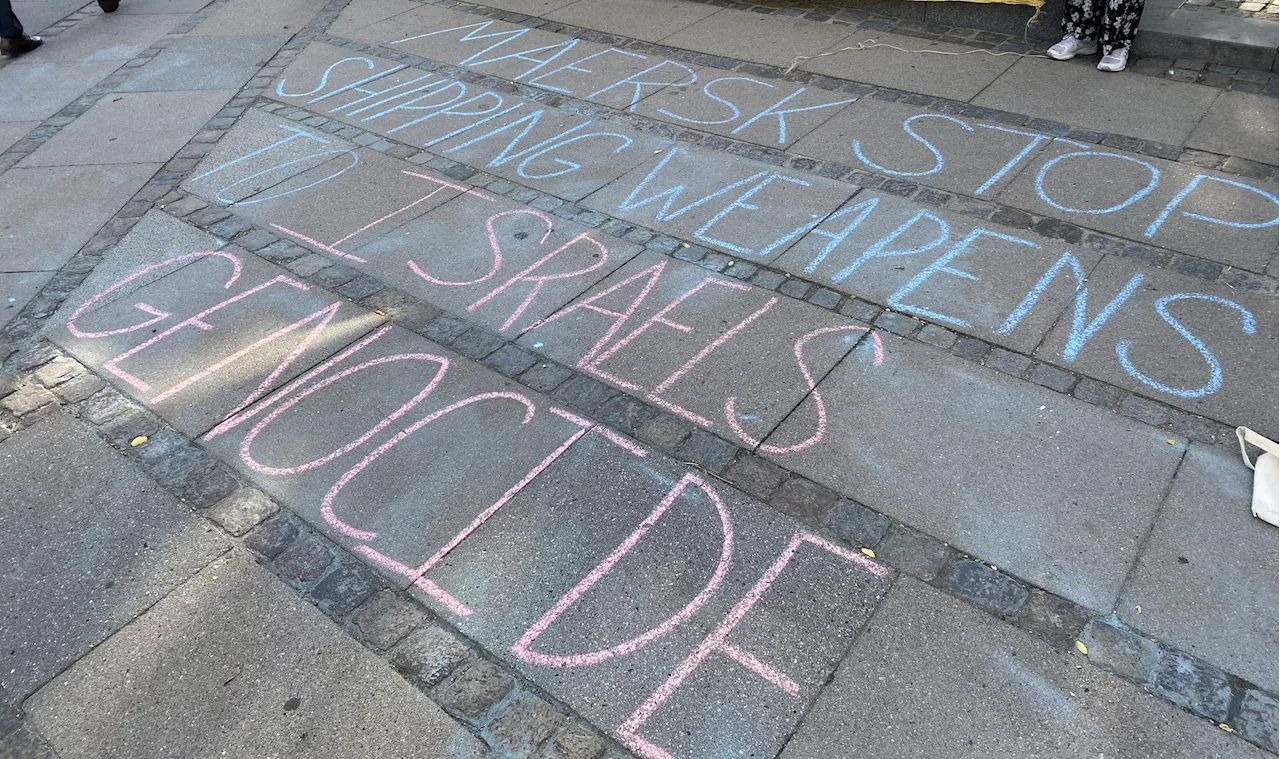 MAERSK STOP
SHIPPING WEAPENS
TO ISRAELS
GENOCIDE